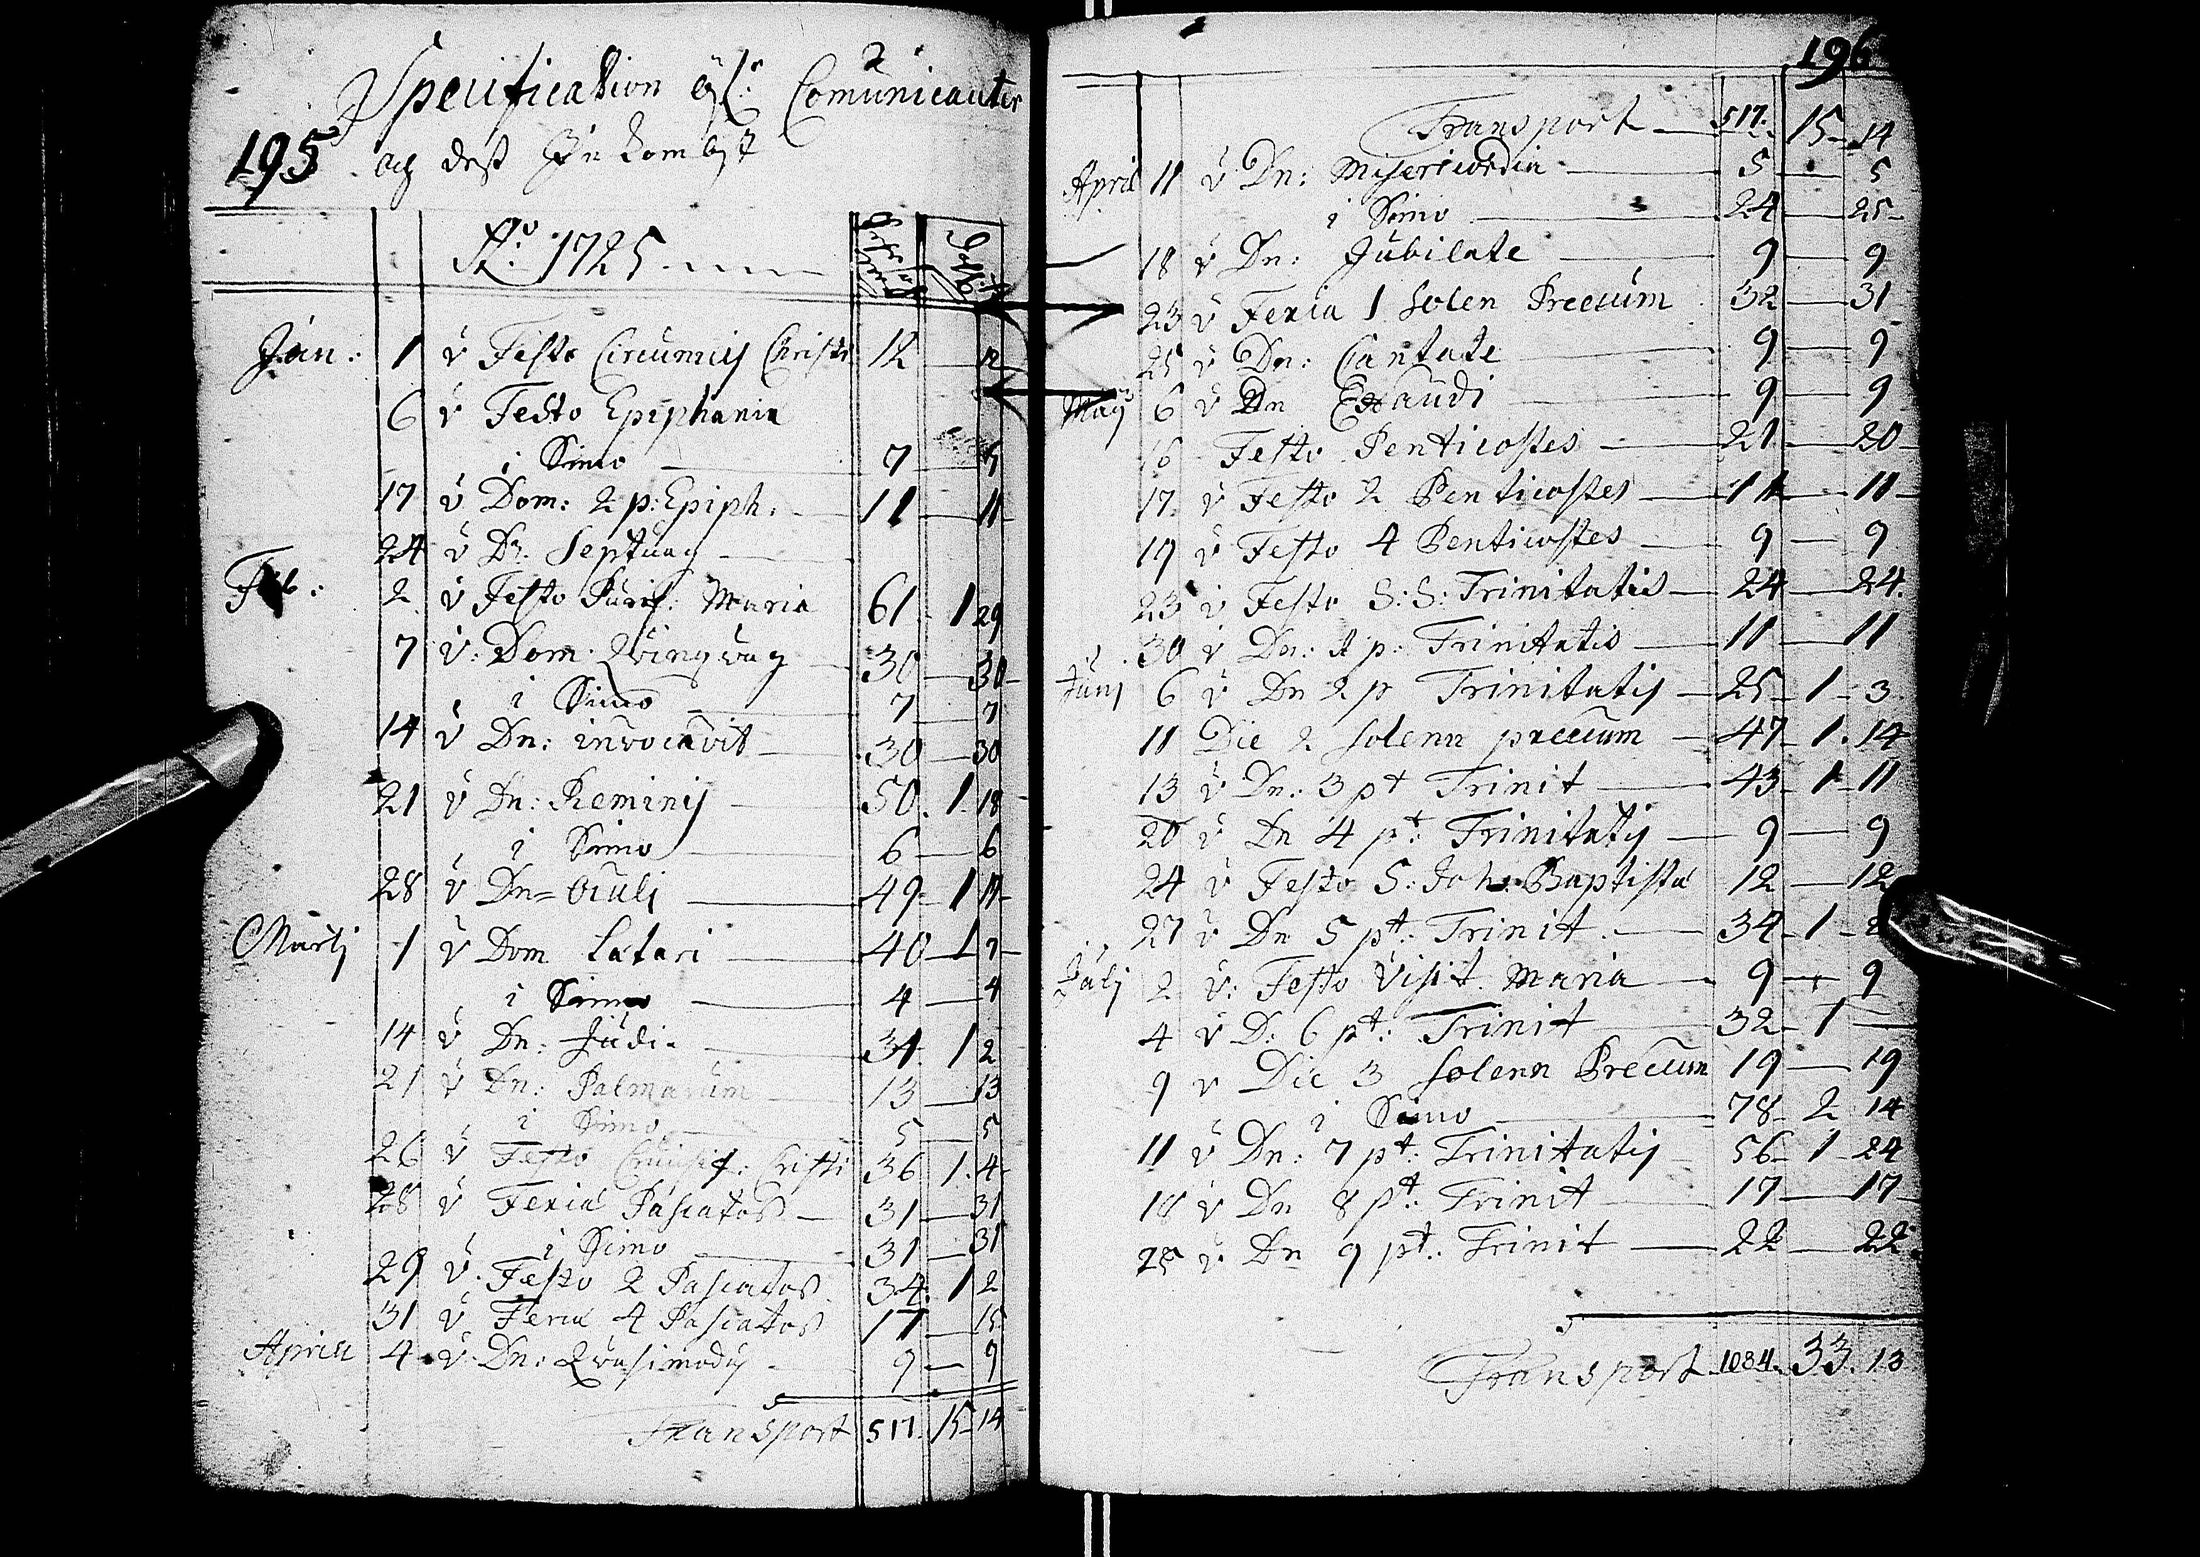 Specification öf: Comunicanter
195 och dess Inkombst
Ao: 1725
Jan: 1 v Festo Circumcis Christi 12 12
6 v Festo Epiphania
i Simo 7 5
17 v Dom: 2 p: Epiph: 11 11
24 v Dn: Septuag
Feb: 2 v Festo Purif: Maria 61 1 29
7 v: Dom: Qvinqvag 30 30
i Simo 7 7
14 v Dn: invocavit 30 30
21 v Dn: Reminis 50 1 18
i Simo 6 6
28 v Dn= Oculi 49 1 17
Martj 1 v Dom Latari 40 1 7
i Simo 4 4
14 v Dn: Judic 34 1 2
21 v Dn: Palmarum 13 13
i Simo 5 5
26 v Festo Crucif: Cristi 36 1 4
28 v Feria Pascatos 31 31
i Simo 31 31
29 v Festo 2 Pascatos 34 1 2
31 v Feria 4 Pascatos 17 15
Aprill 4 v Dn: Qvasimodog 9 9
Transport 517 15 14
196
Transport 517 15 14
April 11 v Dn: Misericordia 5 5
i Simo 24 25
18 v Dn: Jubilate 9 9
23 v Feria 1 Solen Precum 32 31
25 v Dn: Cantate 9 9
Maij 6 v Dn Exaudi 9 9
16 Festo Penticostes 21 20
17 v Festo 2 Penticostes 11 11
19 v Festo 4 Penticostes 9 9
23 v Festo S:S: Trinitatis 24 24
30 v Dn: 1 p: Trinitatis 11 11
Junj 6 v Dn 2 p Trinitatis 25 1 3
11 Die 2 Solenn precum 47 1 14
13 v Dn: 3 pt Trinit 43 1 11
20 v Dn 4 pt: Trinitatis 9 9
24 v Festo S: Joh: Baptista 12 12
27 v Dn 5 pt: Trinit 34 1 2
Julj 2 v: Festo Visit. Maria 9 9
4 v D: 6 pt: Trinit 32 1
9 v Die 3 Solenn Precum 19 19
i Simo 78 2 14
11 v Dn: 7 pt: Trinitatis 56 1 24
18 v Dn 8 pt: Trinit 17 17
25 v Dn 9 pt: Trinit 22 22
Transport 1084 33 13